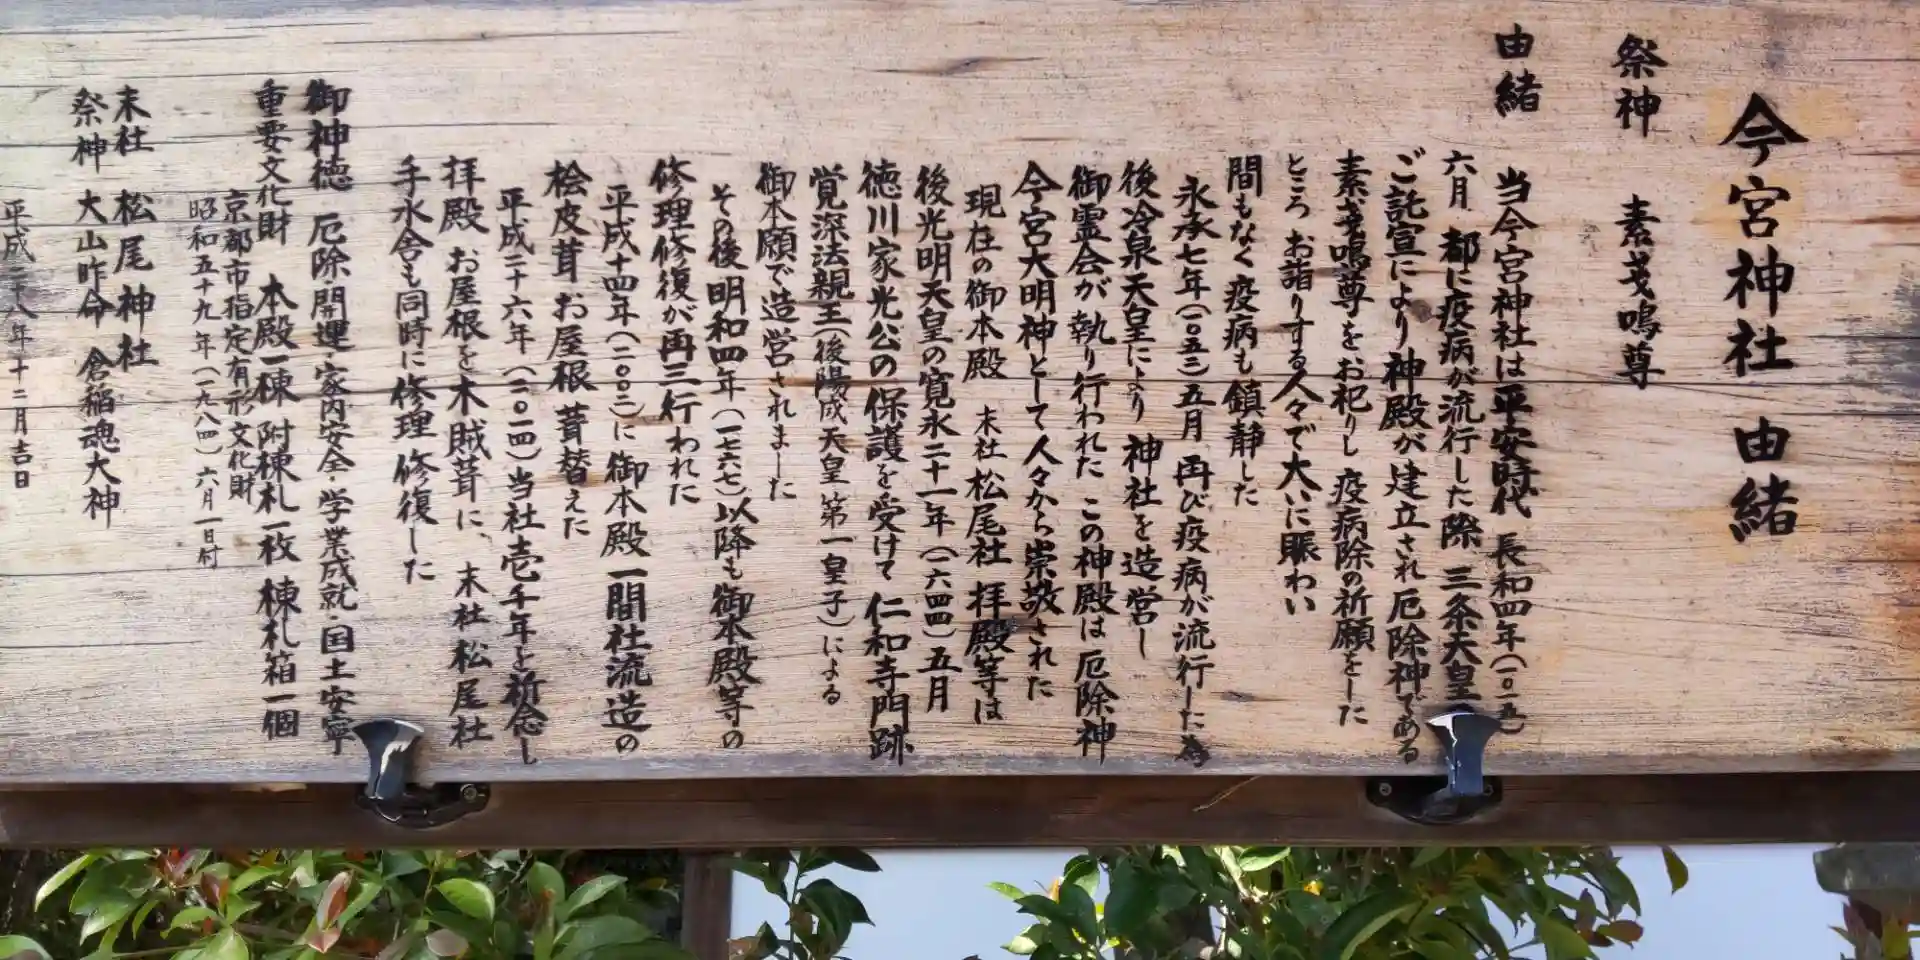 今宮神社 由緒
祭神 素戔嗚尊
由緒
当今宮神社は平安時代 長和四年(一〇一五)
六月 都に疫病が流行した際 三条天皇
ご託宣により 神殿が建立され厄除神である
素戔嗚尊をお祀りし 疫病除の祈願をした
ところ お詣りする人々で大いに賑わい
間もなく疫病も鎮静した
永承七年(一〇五二)五月 再び疫病が流行した為
後冷泉天皇により 神社を造営し
御霊会が執り行われた この神殿は厄除神
今宮大明神として人々から崇敬された
現在の御本殿 末社松尾社 拝殿等は
後光明天皇の寛永二十一年(一六四四)五月
徳川家光公の保護を受けて 仁和寺門跡
覚深法親王(後陽成天皇 第一皇子)による
御本願で造営されました
その後明和四年(一七六七)以降も御本殿等の
修理修復が再三行われた
平成十四年(二〇〇二)に御本殿一間社流造の
桧皮葺 お屋根 葺替えた
平成二十六年(二〇一四)当社壱千年を祈念し
拝殿 お屋根を木賊葺に、末社松尾社
手水舎も同時に修理修復した
御神徳 厄除・開運・家内安全・学業成就・国土安寧
重要文化財 本殿一棟 附棟札一枚 棟札箱一個
京都市指定有形文化財
昭和五十九年(一九八四)六月一日付
末社 松尾神社
祭神 大山咋命 倉稲魂大神
平成二十八年十二月吉日